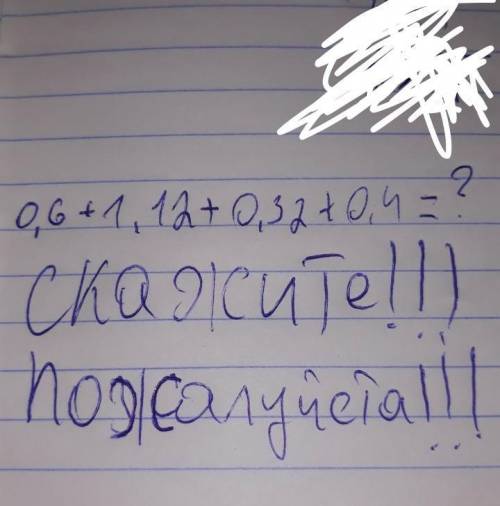 0,6+1,12+0,32+0,4=?
скажите!!!
пожалуйста!!!